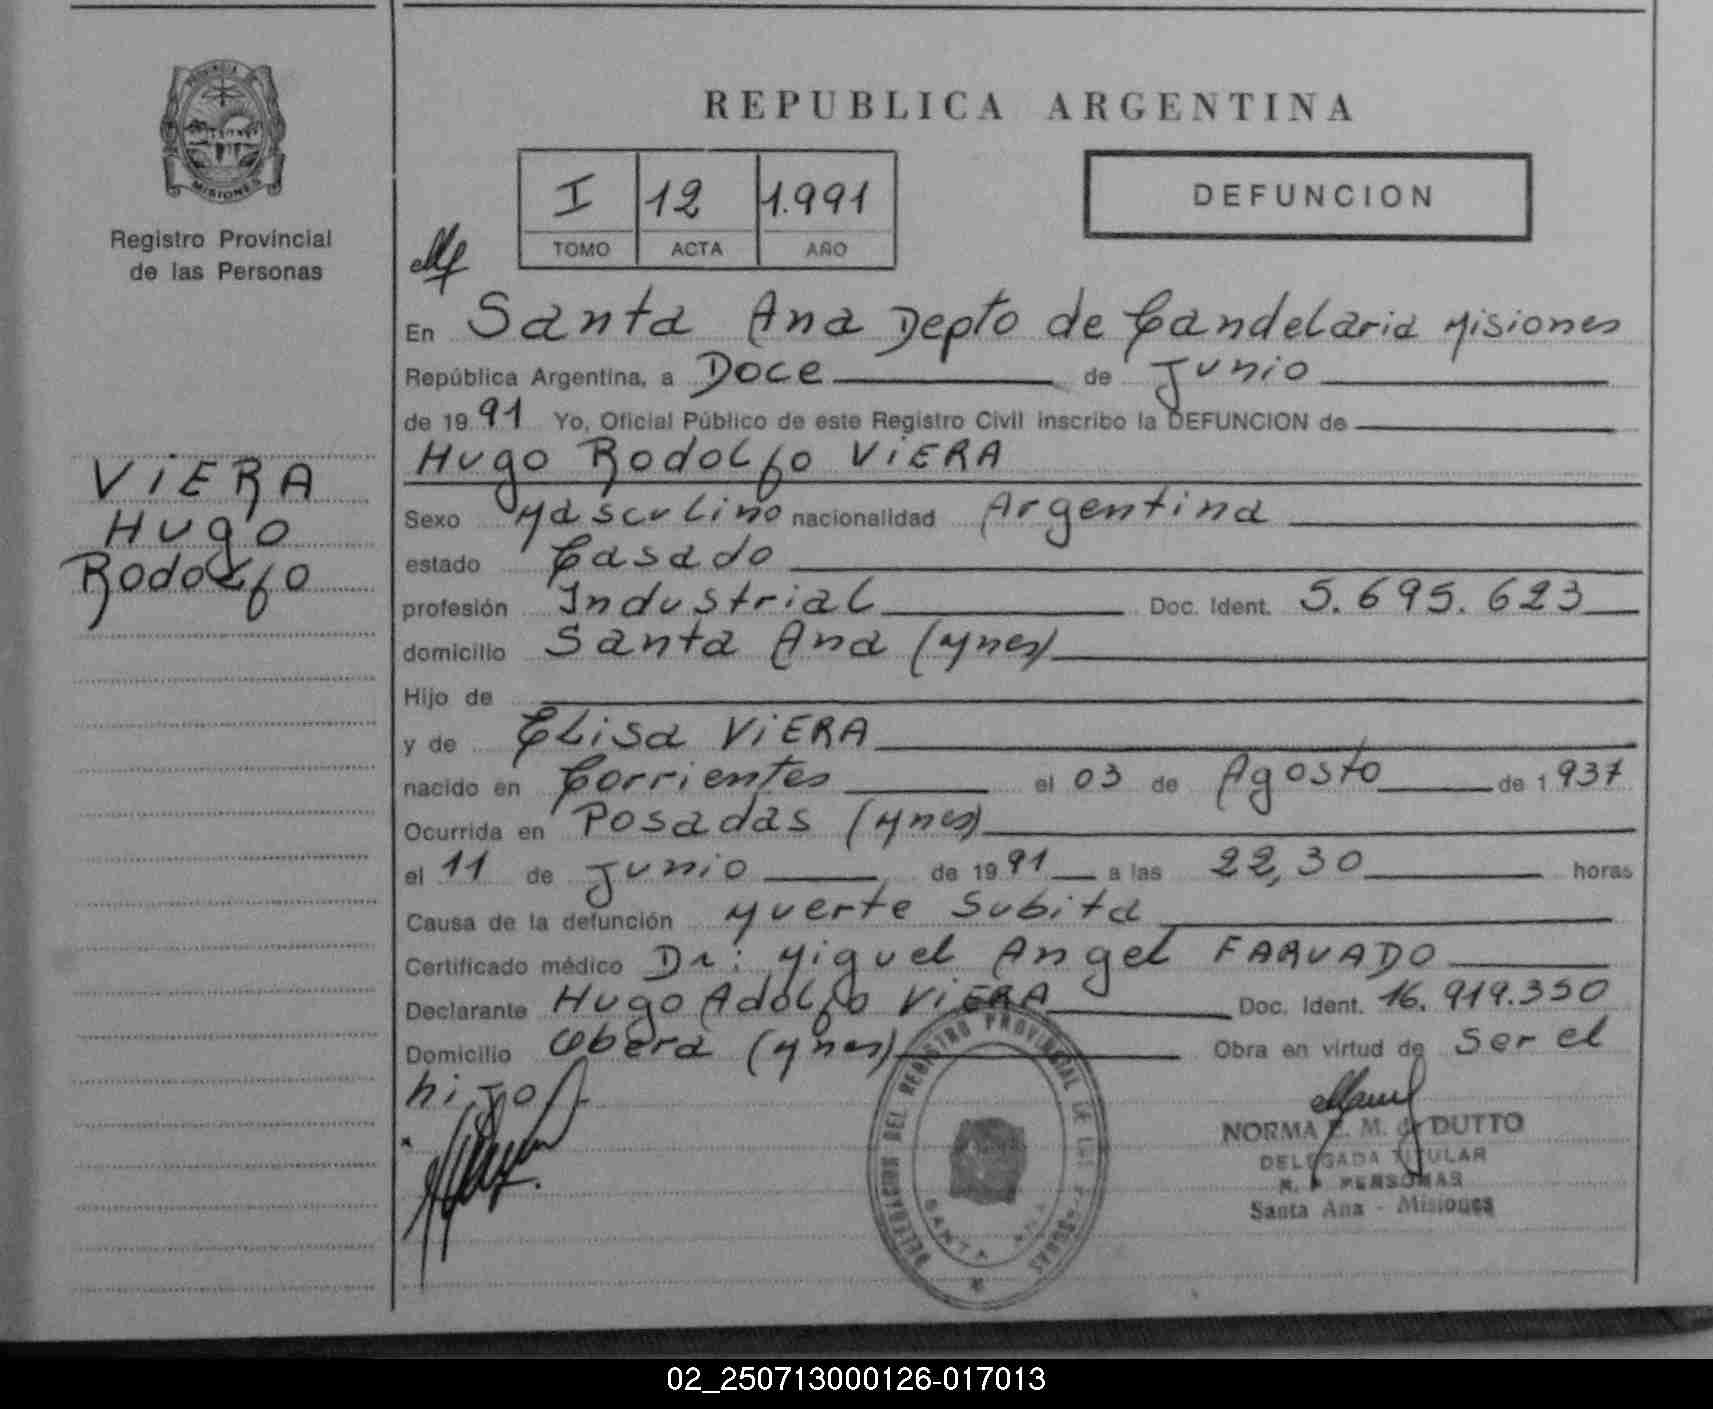 PROVINCIA DE
MISIONES
Registro Provincial
de las Personas
VIERA
Hugo
Rodolfo
REPUBLICA ARGENTINA
I 12 1.991
TOMO ACTA AÑO
DEFUNCION
En Santa Ana Depto de Candelaria Misiones
República Argentina, a Doce de Junio
de 1991 Yo, Oficial Público de este Registro Civil inscribo la DEFUNCION de
Hugo Rodolfo VIERA
Sexo Masculino nacionalidad Argentina
estado Casado
profesión Industrial Doc. Ident. 5.695.623
domicilio Santa Ana (Mnes)
Hijo de
y de Elisa VIERA
nacido en Corrientes el 03 de Agosto de 1937
Ocurrida en Posadas (Mnes)
el 11 de Junio de 1991 a las 22,30 horas
Causa de la defunción Muerte Subita
Certificado médico Dr: Miguel Angel
Declarante Hugo Adolfo VIERA Doc. Ident. 16.919.350
Domicilio Obera (Mnes) Obra en virtud de ser el
hijo
DELEGACION DEL REGISTRO PROVINCIAL DE LAS PERSONAS
SANTA ANA
NORMA E. M. de DUTTO
DELEGADA TITULAR
R. P. PERSONAS
Santa Ana - Misiones
02_250713000126-017013